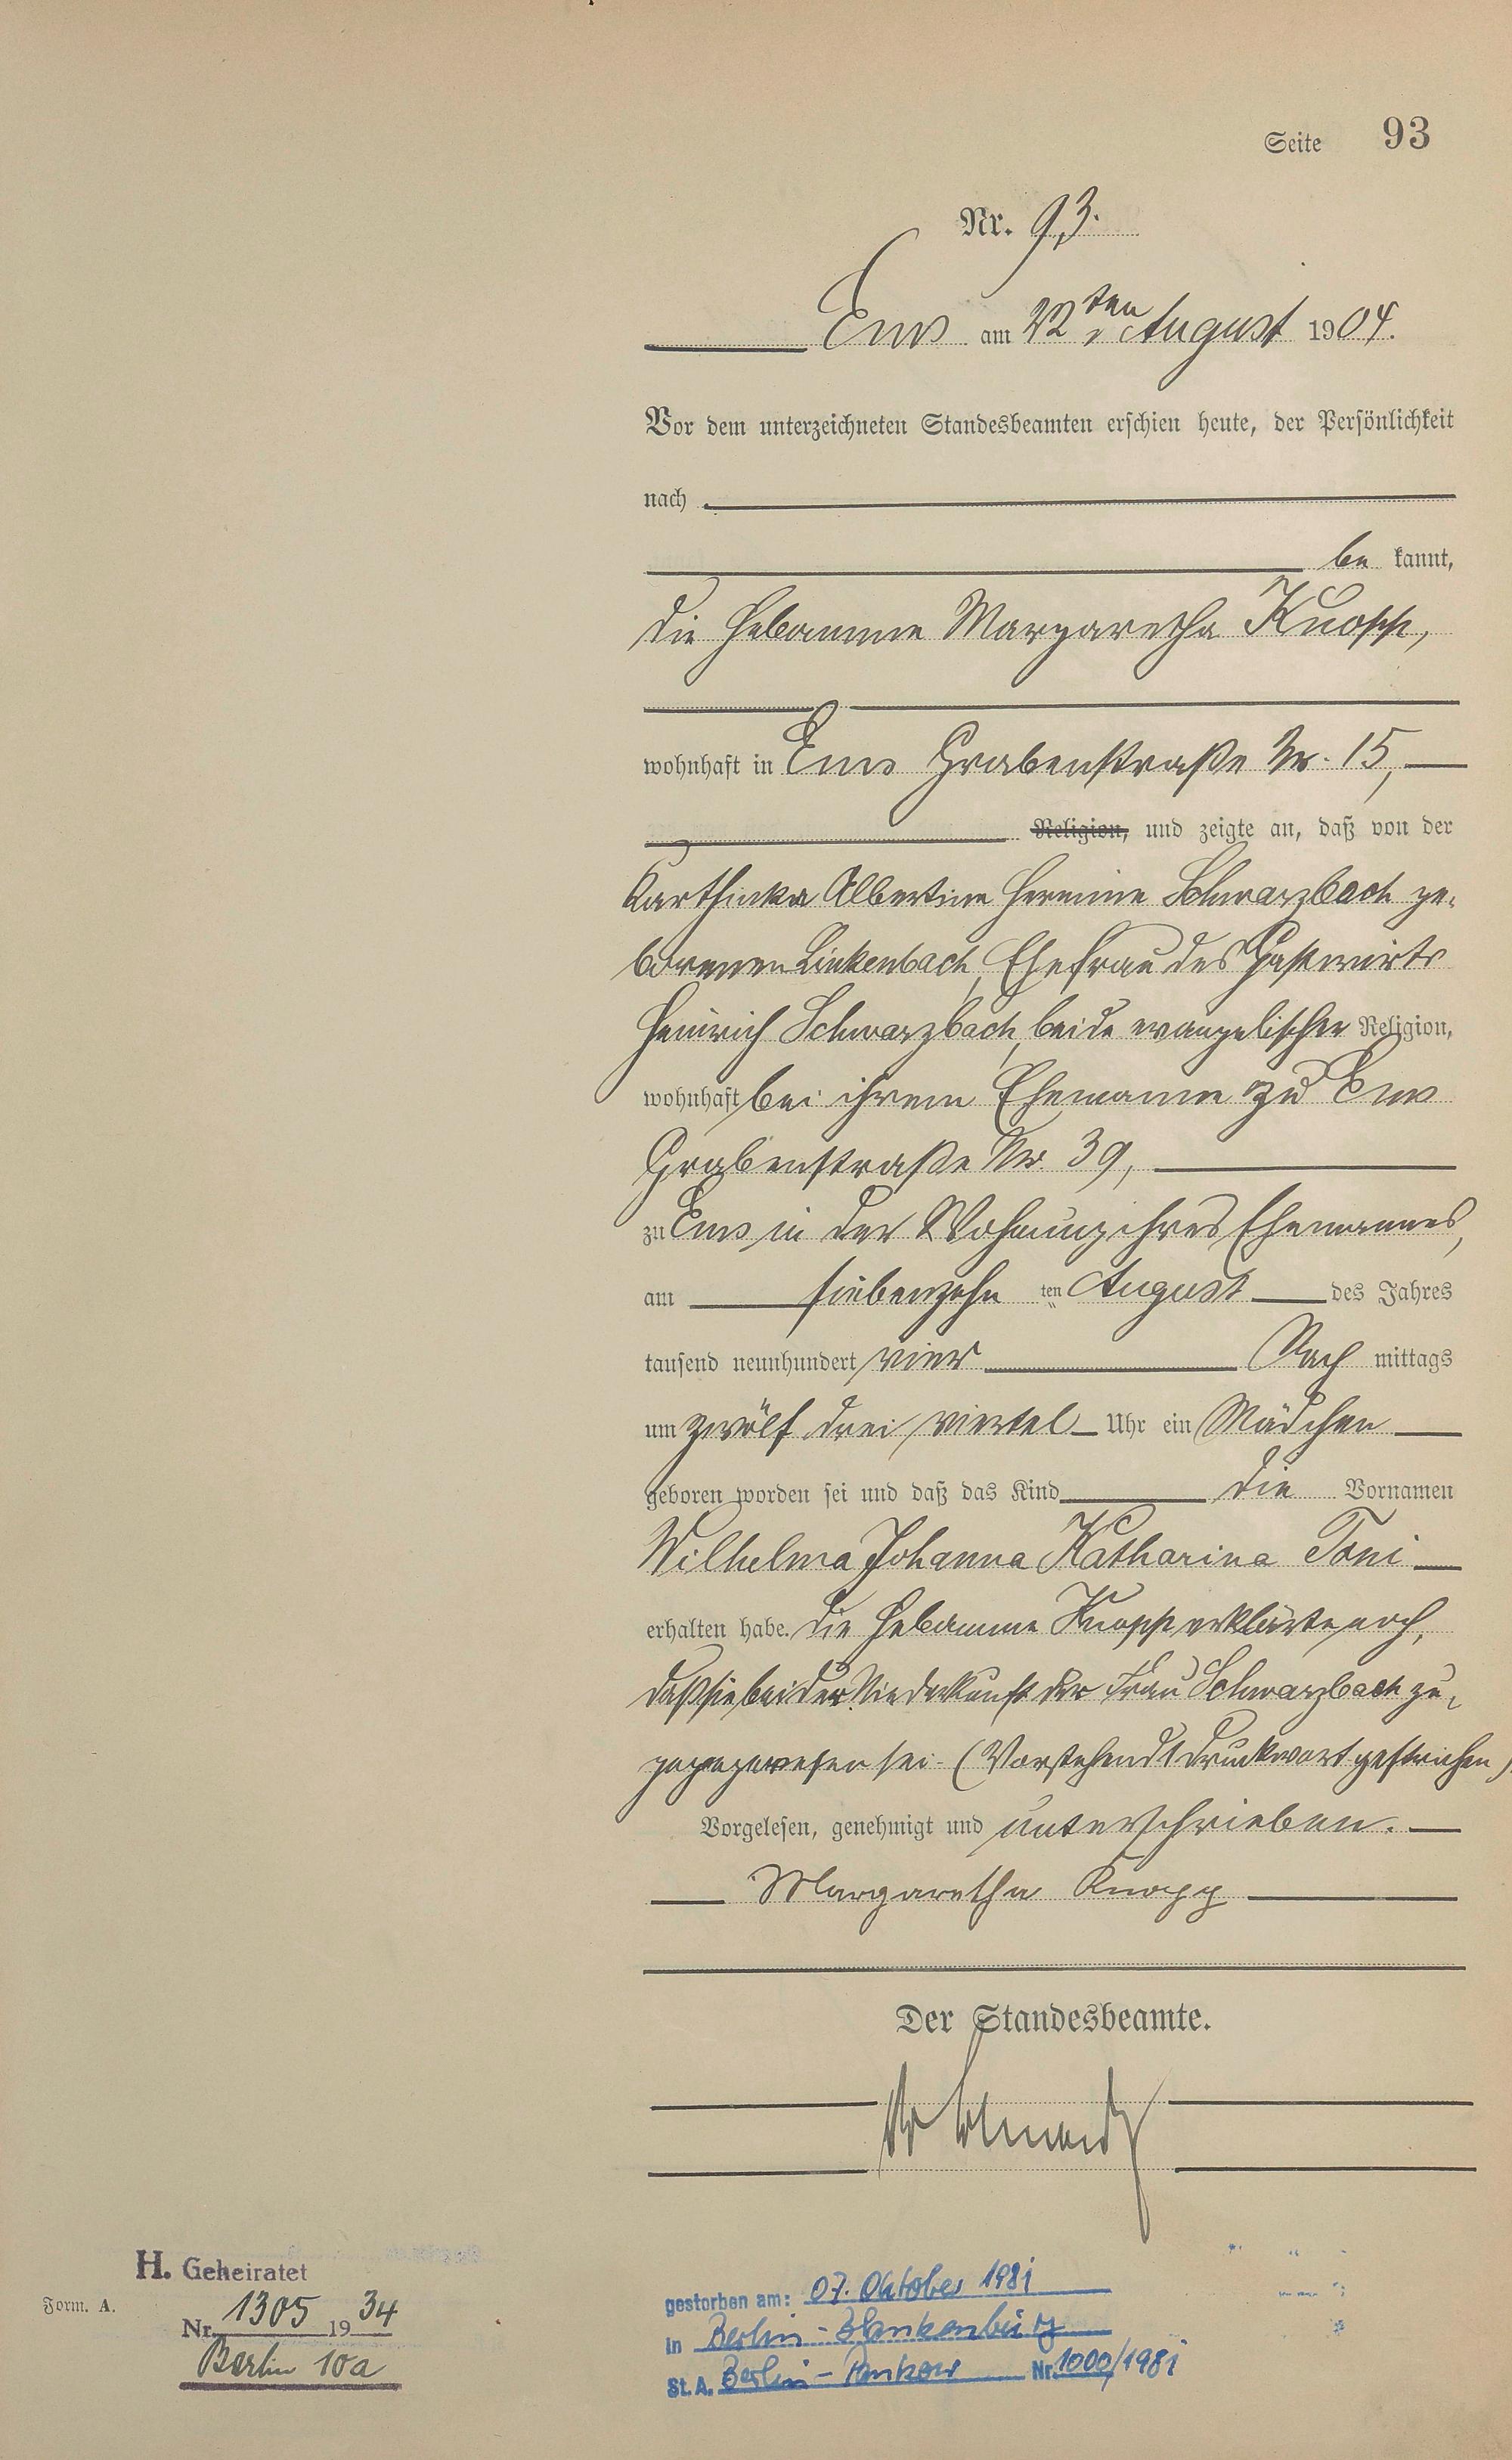 Seite 93
Nr. 93.
Ems am 22ten August 1904.
Vor dem unterzeichneten Standesbeamten erschien heute, der Persönlichkeit
nach
be kannt,
die Hebamme Margaretha Knopp,
wohnhaft in Ems Grabenstraße Nr. 15,
Religion, und zeigte an, daß von der
Karthinka Albertine Hermine Schwarzbach ge-
borenen Linkenbach, Ehefrau des Gastwirts
Heinrich Schwarzbach, beide evangelischer Religion,
wohnhaft bei ihrem Ehemanne zu Ems
Grabenstraße Nr. 39,
zu Ems in der Wohnung ihres Ehemannes,
am siebenzehn ten August des Jahres
tausend neunhundert vier Nach mittags
um zwölf drei viertel Uhr ein Mädchen
geboren worden sei und daß das Kind die Vornamen
Wilhelma Johanna Katharina Toni
erhalten habe. Die Hebamme Knopp erklärte noch,
daß sie bei der Niederkunft der Frau Schwarzbach zu-
gegen gewesen sei. (Vorstehend 1 Druckwort gestrichen)
Vorgelesen, genehmigt und unterschrieben.
Margaretha Knopp
Der Standesbeamte.
H. Geheiratet
Nr. 1305 1934
Berlin 10a
Form. A.
gestorben am: 07. Oktober 1981
in Berlin-Blankenburg
St. A. Berlin-Pankow Nr. 1000/1981